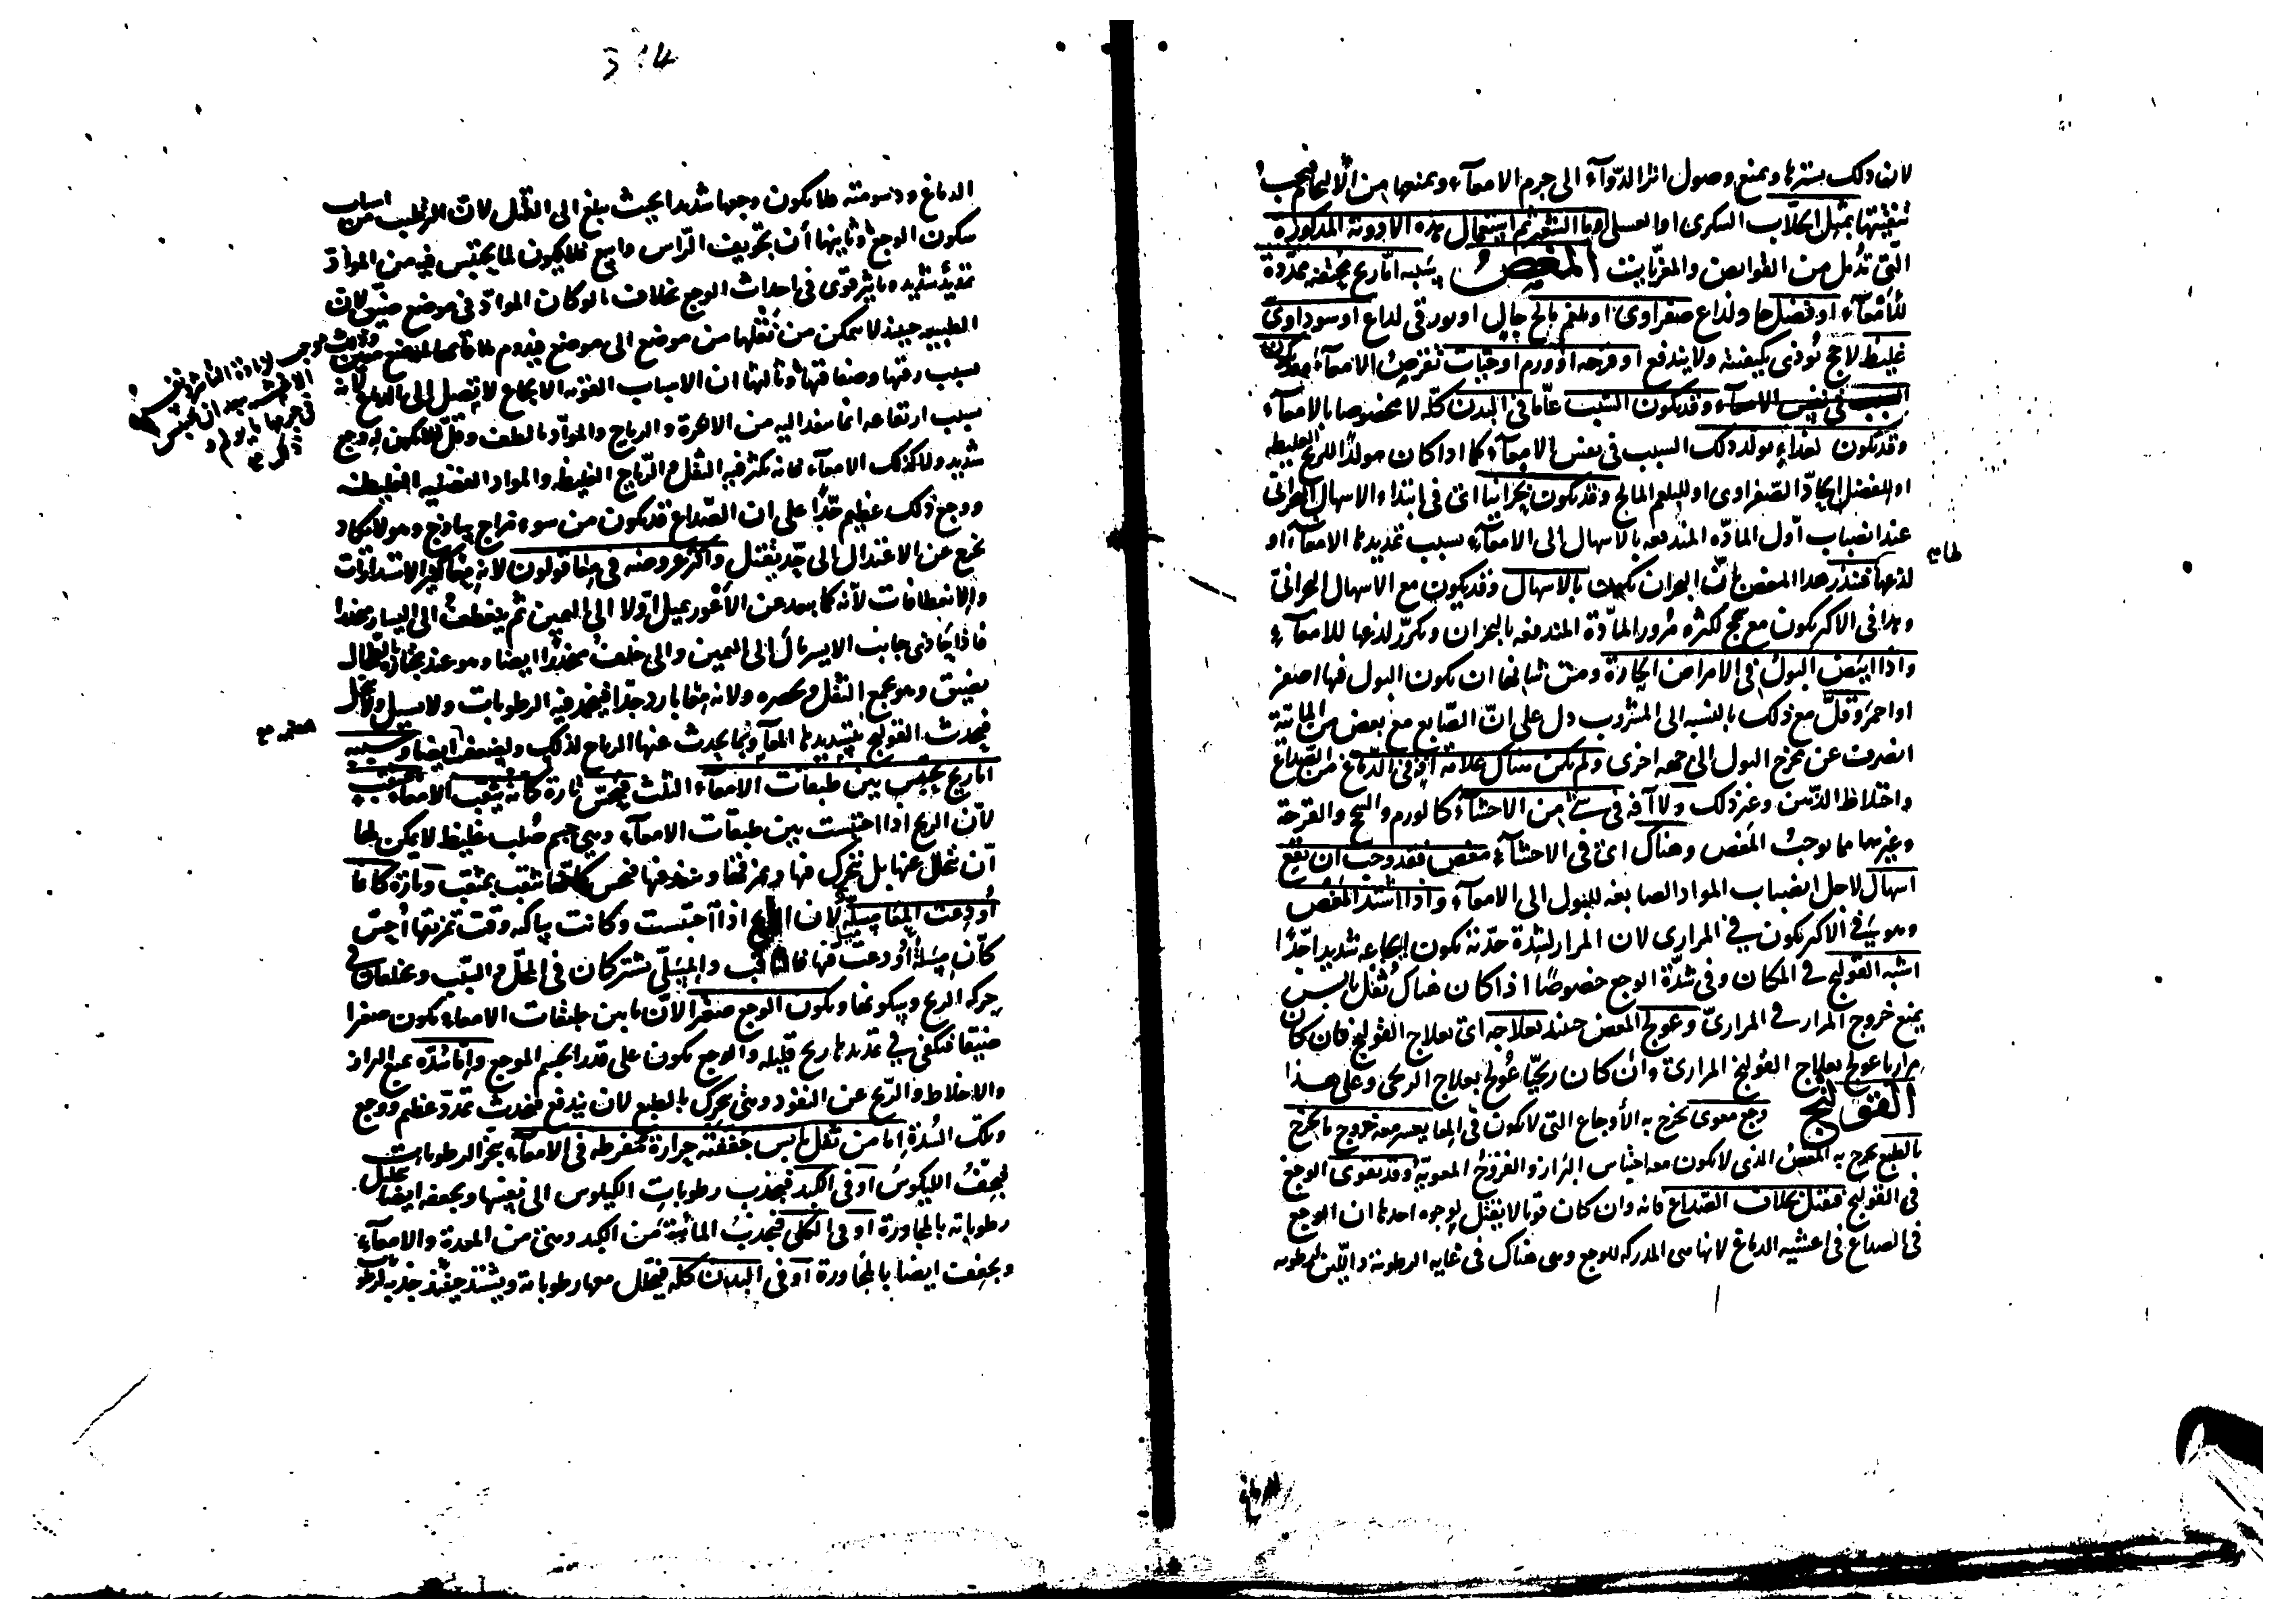 لان ذلك يسترها ويمنع وصول اثر الدوآء الى جرم الامعآء ويمنعها من الالتحام فيجب
تنقيتها بمثل الجلاب السكرى او العسلى او ماء الشعير ثم استعمال هذه الادوية المذكورة
التى تدمل من القوابض والمغريات المغص سببه اما ريح محتقنة ممددة
للامعآء او فضل حاد لذاع صفراوى او بلغم مالح جال او بورقى لذاع او سوداوى
غليظ لاحج يوذى بكيفيته ولا يندفع او قرحه او ورم او حيات تقرص الامعآء
السبب فى نفس الامعآء وقد يكون السبب عاما فى البدن كله لا مخصوصا بالامعآء
وقد يكون لغذاء مولد ذلك السبب فى بعض الامعآء كما اذا كان مولدا للريح الغليظه
او للفضل الحاد الصفراوى او للبلغم المالح وقد يكون بحرانيا اى فى ابتداء الاسهال البحرانى
عند انصباب اول الماده المندفعه بالاسهال الى الامعآء بسبب تمديدها الامعآء او
لذعها فينذر هذا المغص بان البحران يكون بالاسهال وقد يكون مع الاسهال البحرانى
وهذا فى الاكثر يكون مع سحج لكثره مرور المادة المندفعه بالبحران وتكرر لذعها للامعآء
واذا ابيض البول فى الامراض الحارة ومن شانها ان يكون البول فيها اصفر
او احمر وقل مع ذلك بالنسبه الى المشروب دل على ان الصابغ مع بعض من المائية
انصرف عن مخرج البول الى جهه اخرى ولم يكن هناك علامة آفة فى الدماغ من الصداع
واختلاط الذهن وغير ذلك ولا آفه فى شئ من الاحشآء كالورم والسحج والقرحة
وغيرها مما يوجب المغص وهناك اى فى الاحشآء مغص فقد وجب ان يقع
اسهال لاجل انصباب المواد الصابغه للبول الى الامعآء واذا اشتد المغص
وهو فى الاكثر يكون فى المرارى لان المرار لشدة حدته يكون ايجاعه شديدا جدا
اشبه القولنج فى المكان وفى شدة الوجع خصوصا اذا كان هناك ثفل يابس
يمنع خروج المرار فى المرارى وعولج المغص حينئذ بعلاجه اى بعلاج القولنج فان كان
مراريا عولج بعلاج القولنج المرارى وان كان ريحيا عولج بعلاج الريحى وعلى هذا
القولنج وجع معوى يخرج به الاوجاع التى لا يكون فى المعا يعسر معه خروج ما يخرج
بالطبع يخرج به المغص الذى لا يكون معه احتباس البراز والقروح المعوية وقد يقوى الوجع
فى القولنج فيقتل بخلاف الصداع فانه وان كان قويا لا يقتل لوجوه احدها ان الوجع
فى الصداع فى اغشيه الدماغ لانها هى المدركه للوجع وهى هناك فى غايه الرطوبة واللين لرطوبه
الدماغ
الدماغ ودسومته فلا يكون وجعها شديدا بحيث يبلغ الى القتل لان الترطيب من اسباب
سكون الوجع وثانيها أن تجويف الراس واسع فلا يكون لما يحتبس فيه من المواد
تمديد شديد وتاثير قوى فى احداث الوجع بخلاف ما لو كان المواد فى موضع ضيق لان
الطبيعه حينئذ لا تتمكن من نقلها من موضع الى موضع فيدوم ملاقاتها لموضع معين
بسبب رقتها وصفاقتها وثالثها ان الاسباب القويه الايجاع لا تصل الى الدماغ لانه
بسبب ارتفاعه انما ينفذ اليه من الابخرة والرياح والمواد ما لطف وقل فلا يكون له وجع
شديد ولا كذلك الامعآء فانه يكثر فيها الثفل والرياح الغليظه والمواد الفضليه الغليظة
ووجع ذلك عظيم جدا على ان الصداع قد يكون من سوء مزاج ساذج وهو لا يكاد
يخرج عن الاعتدال الى حد يقتل واكثر عروضه فى معا قولون لانه معا كثير الاستدارات
والانعطافات لأنه كما يبعد عن الأعور يميل اولا الى اليمين ثم ينعطف الى اليسار منحدرا
فاذا حاذى جانب الايسر مال الى اليمين والى خلف منحدرا ايضا وهو عند مجازه بالطحال
يضيق وهو مجمع الثفل ومحصره ولانه معا بارد جدا فيجمد فيه الرطوبات ولا يسيل ولا يتحلل
فيحدث القولنج بتسديدها المعآء وبما يحدث عنها الرياح لذلك ولضعف ايضا وسببه
اما ريح يحتبس بين طبقات الامعآء الثلث فيحس تارة كانه يثقب الامعآء بمثقب
لان الريح اذا احتبست بين طبقات الامعآء وهى جسم صلب غليظ لا يمكن لها
أن تتحلل عنها بل تتحرك فيها وتمزقها وتنفذ فيها فتحس كانها تثقب بمثقب وتارة كانها
أودعت المعا مسلة لان الريح اذا احتبست وكانت ساكنه وقت تمزيقها أحس
كان مسلة أودعت فيها فالثاقب والمسلى تشتركان فى المحل والسبب ويختلفان فى
حركه الريح وسكونها ويكون الوجع صغيرا لان ما بين طبقات الامعآء يكون صغيرا
ضيقا فيكفى فى تمديدها ريح قليله والوجع يكون على قدر الجسم الموجع واما سدة تمنع البراز
والاخلاط والريح عن النفوذ وهى تتحرك بالطبع لان يندفع فيحدث تمدد عظيم ووجع
وتلك السدة إما من ثفل يابس جففته حرارة مفرطه فى الامعآء بتبخر الرطوبات
فيجفف الكيلوس أو فى الكبد فيجذب رطوبات الكيلوس الى نفسها ويجففه ايضا بتحليل
رطوباته بالمجاورة او فى الكلى فيجذب المائية من الكبد وهى من المعدة والامعآء
ويجفف ايضا بالمجاورة او فى البدن كله فيتحلل معها رطوباته ويشتد حينئذ جذبه لرطوبات